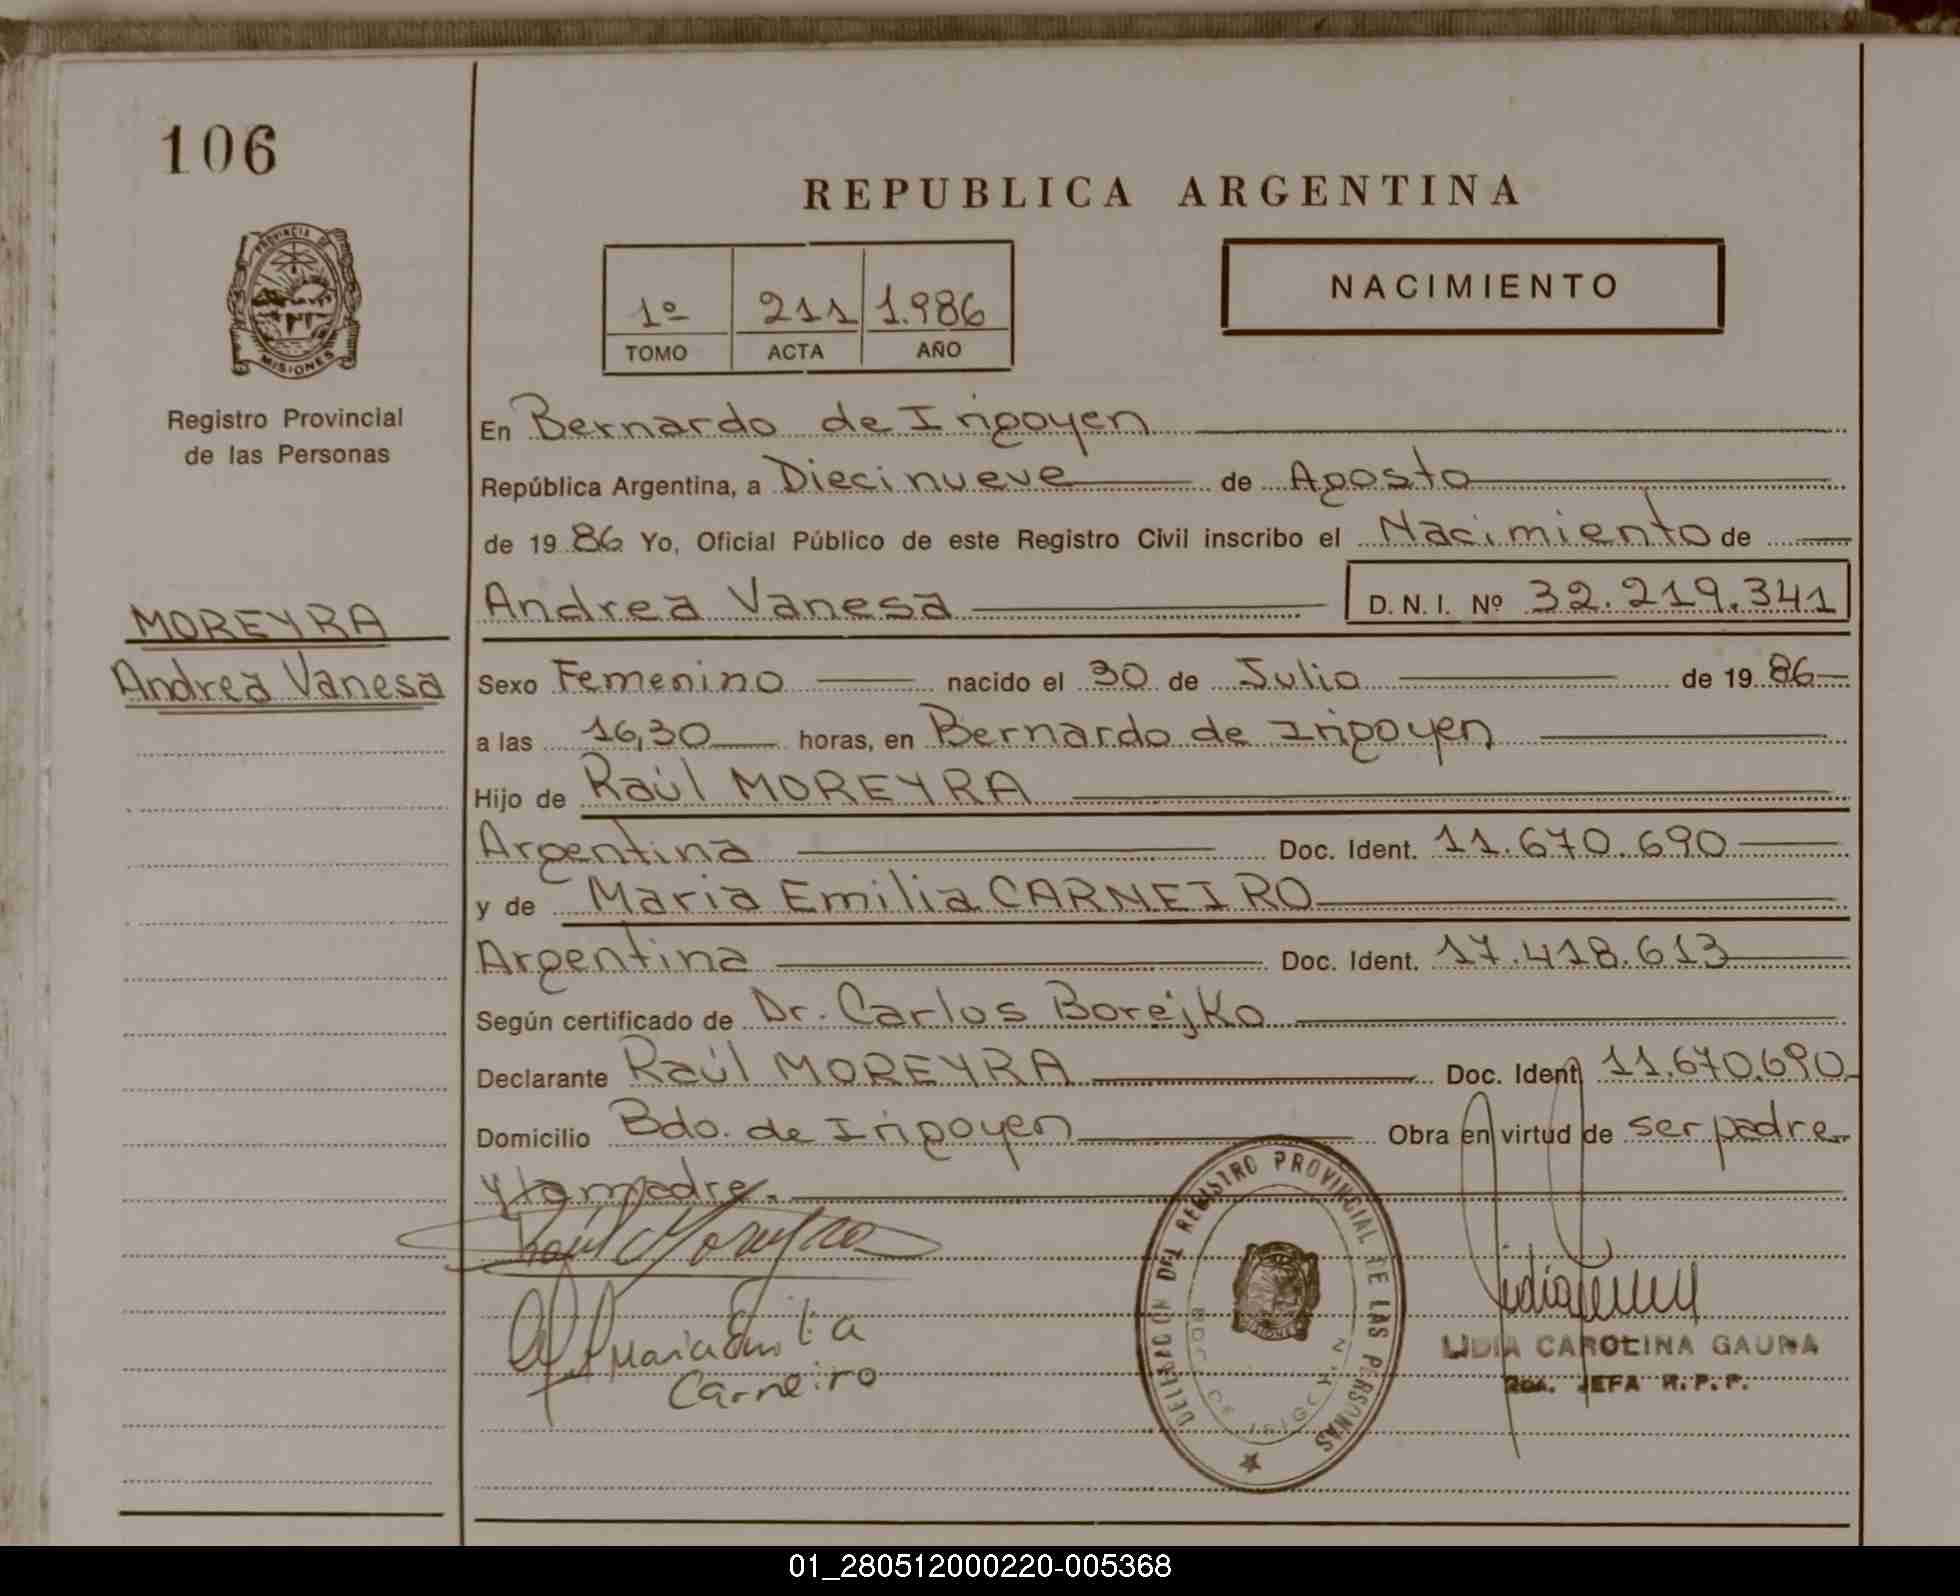 106
REPUBLICA ARGENTINA
PROVINCIA DE
MISIONES
1º 211 1.986
TOMO ACTA AÑO
NACIMIENTO
Registro Provincial
de las Personas
En Bernardo de Irigoyen
República Argentina, a Diecinueve de Agosto
de 19 86 Yo, Oficial Público de este Registro Civil inscribo el Nacimiento de
Andrea Vanesa D. N. I. Nº 32.219.341
MOREYRA
Andrea Vanesa
Sexo Femenino nacido el 30 de Julio de 19 86
a las 16,30 horas, en Bernardo de Irigoyen
Hijo de Raúl MOREYRA
Argentina Doc. Ident. 11.670.690
y de Maria Emilia CARNEIRO
Argentina Doc. Ident. 17.418.613
Según certificado de Dr. Carlos Borejko
Declarante Raúl MOREYRA Doc. Ident. 11.670.690
Domicilio Bdo. de Irigoyen Obra en virtud de ser padre
y la madre.
Raúl Moreyra
Maria Emilia
Carneiro
DELEGACION DEL REGISTRO PROVINCIAL DE LAS PERSONAS
BDO. DE IRIGOYEN
LIDIA CAROLINA GAUNA
2da. JEFA R.P.P.
01_280512000220-005368